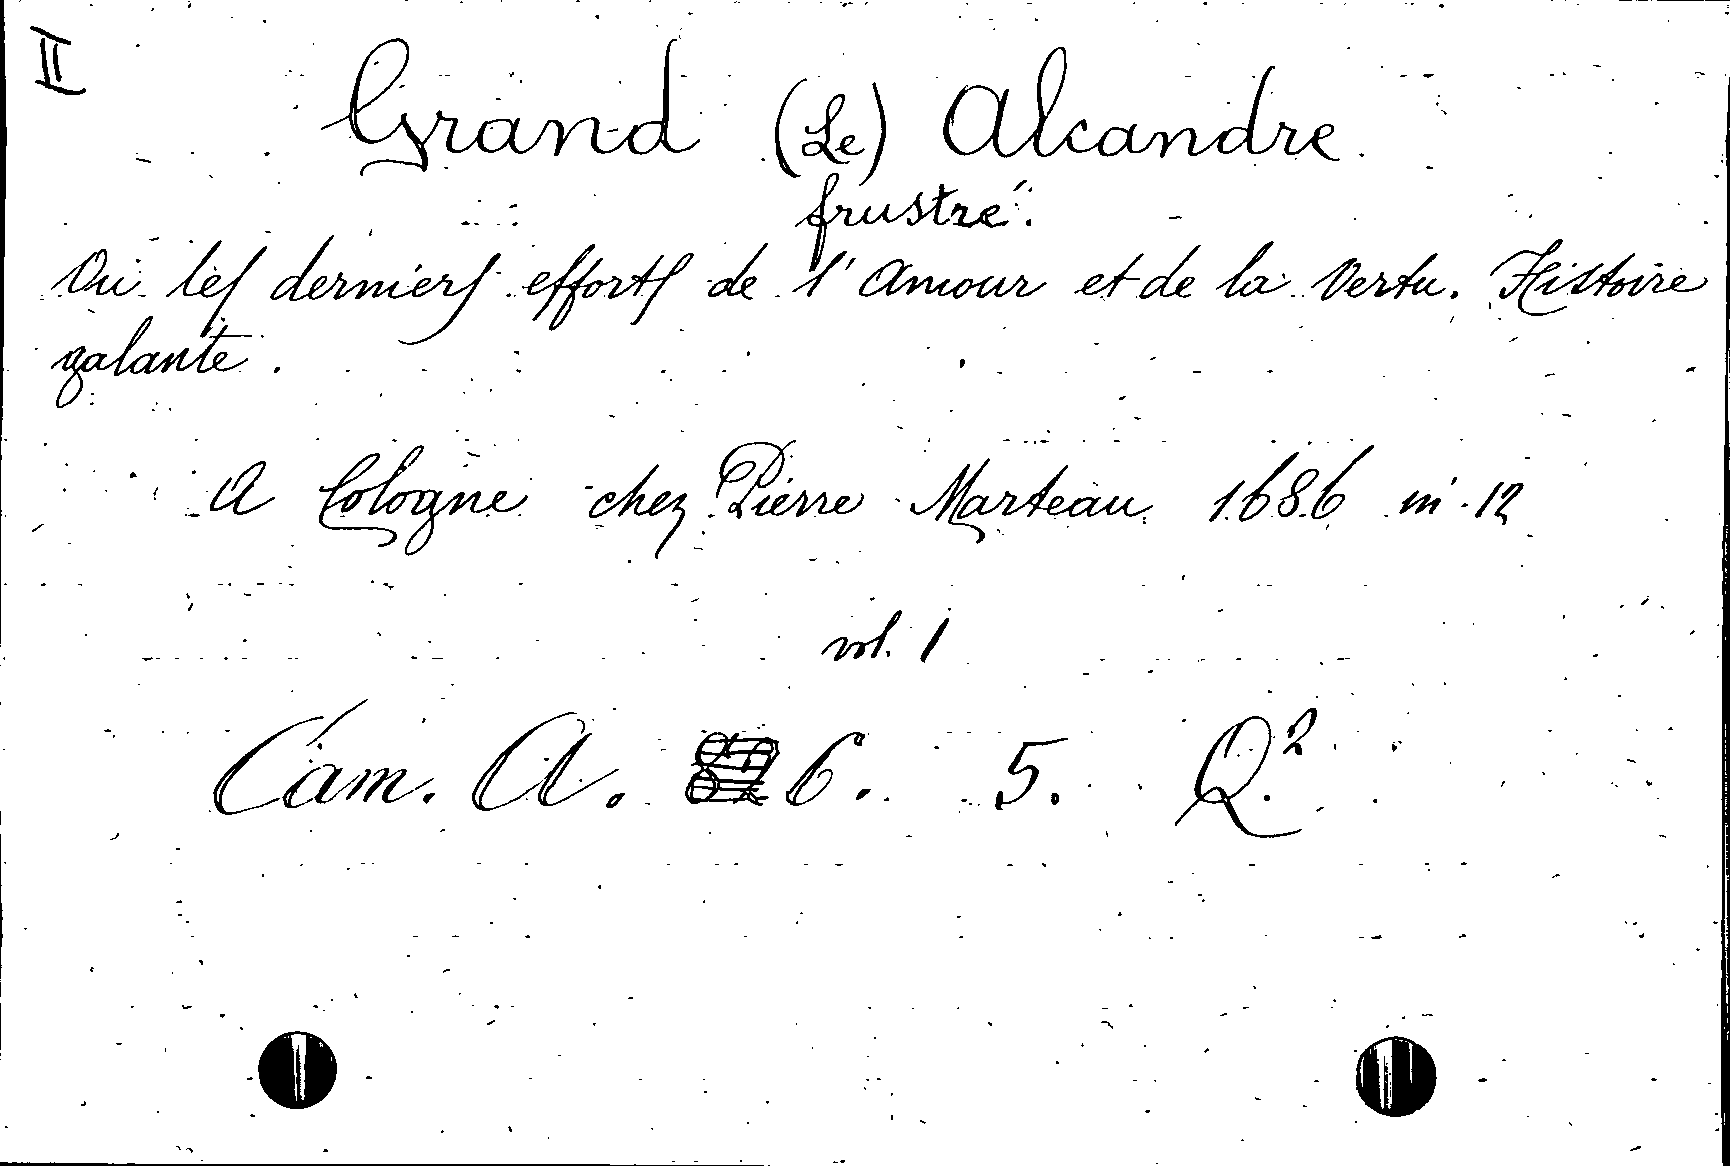 II
Grand (Le) Alcandre
frustré.
Ou les derniers efforts de l'Amour et de la Vertu. Histoire
galante.
A Cologne chez Pierre Marteau 1686 in 12
vol. 1
Cam. A. 6. 5. Q.²